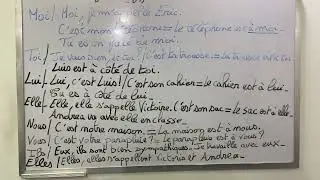 Moi / Moi, je m'appelle Éric.
C'est mon téléphone = Le téléphone est à moi.
Tu es en face de moi.
Toi / Je vous
Luis est à côté de toi.
Lui / Lui, c'est Luis! / C'est son cahier = le cahier est à lui.
Tu es à côté de lui.
Elle / Elle, elle s'appelle Victoire. C'est son sac = le sac est à elle.
Andrea va avec elle en classe
Nous / C'est notre maison. = La maison est à nous.
Vous / C'est votre parapluie? = le parapluie est à vous?
Ils / Eux, ils sont bien sympathiques. Je travaille avec eux.
Elles / Elles, elles s'appellent Victoria et Andrea.